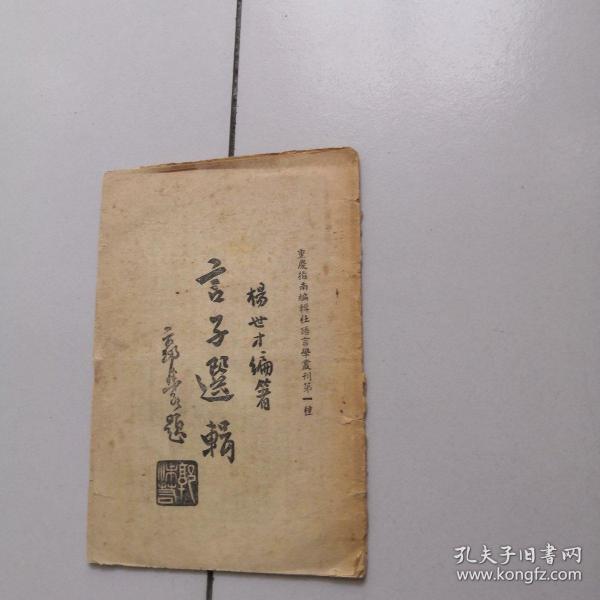 重慶指南編輯社語言學叢刊第一種
楊世才編著
言子選輯
題
郭沫若
孔夫子旧书网
www.kongfz.com